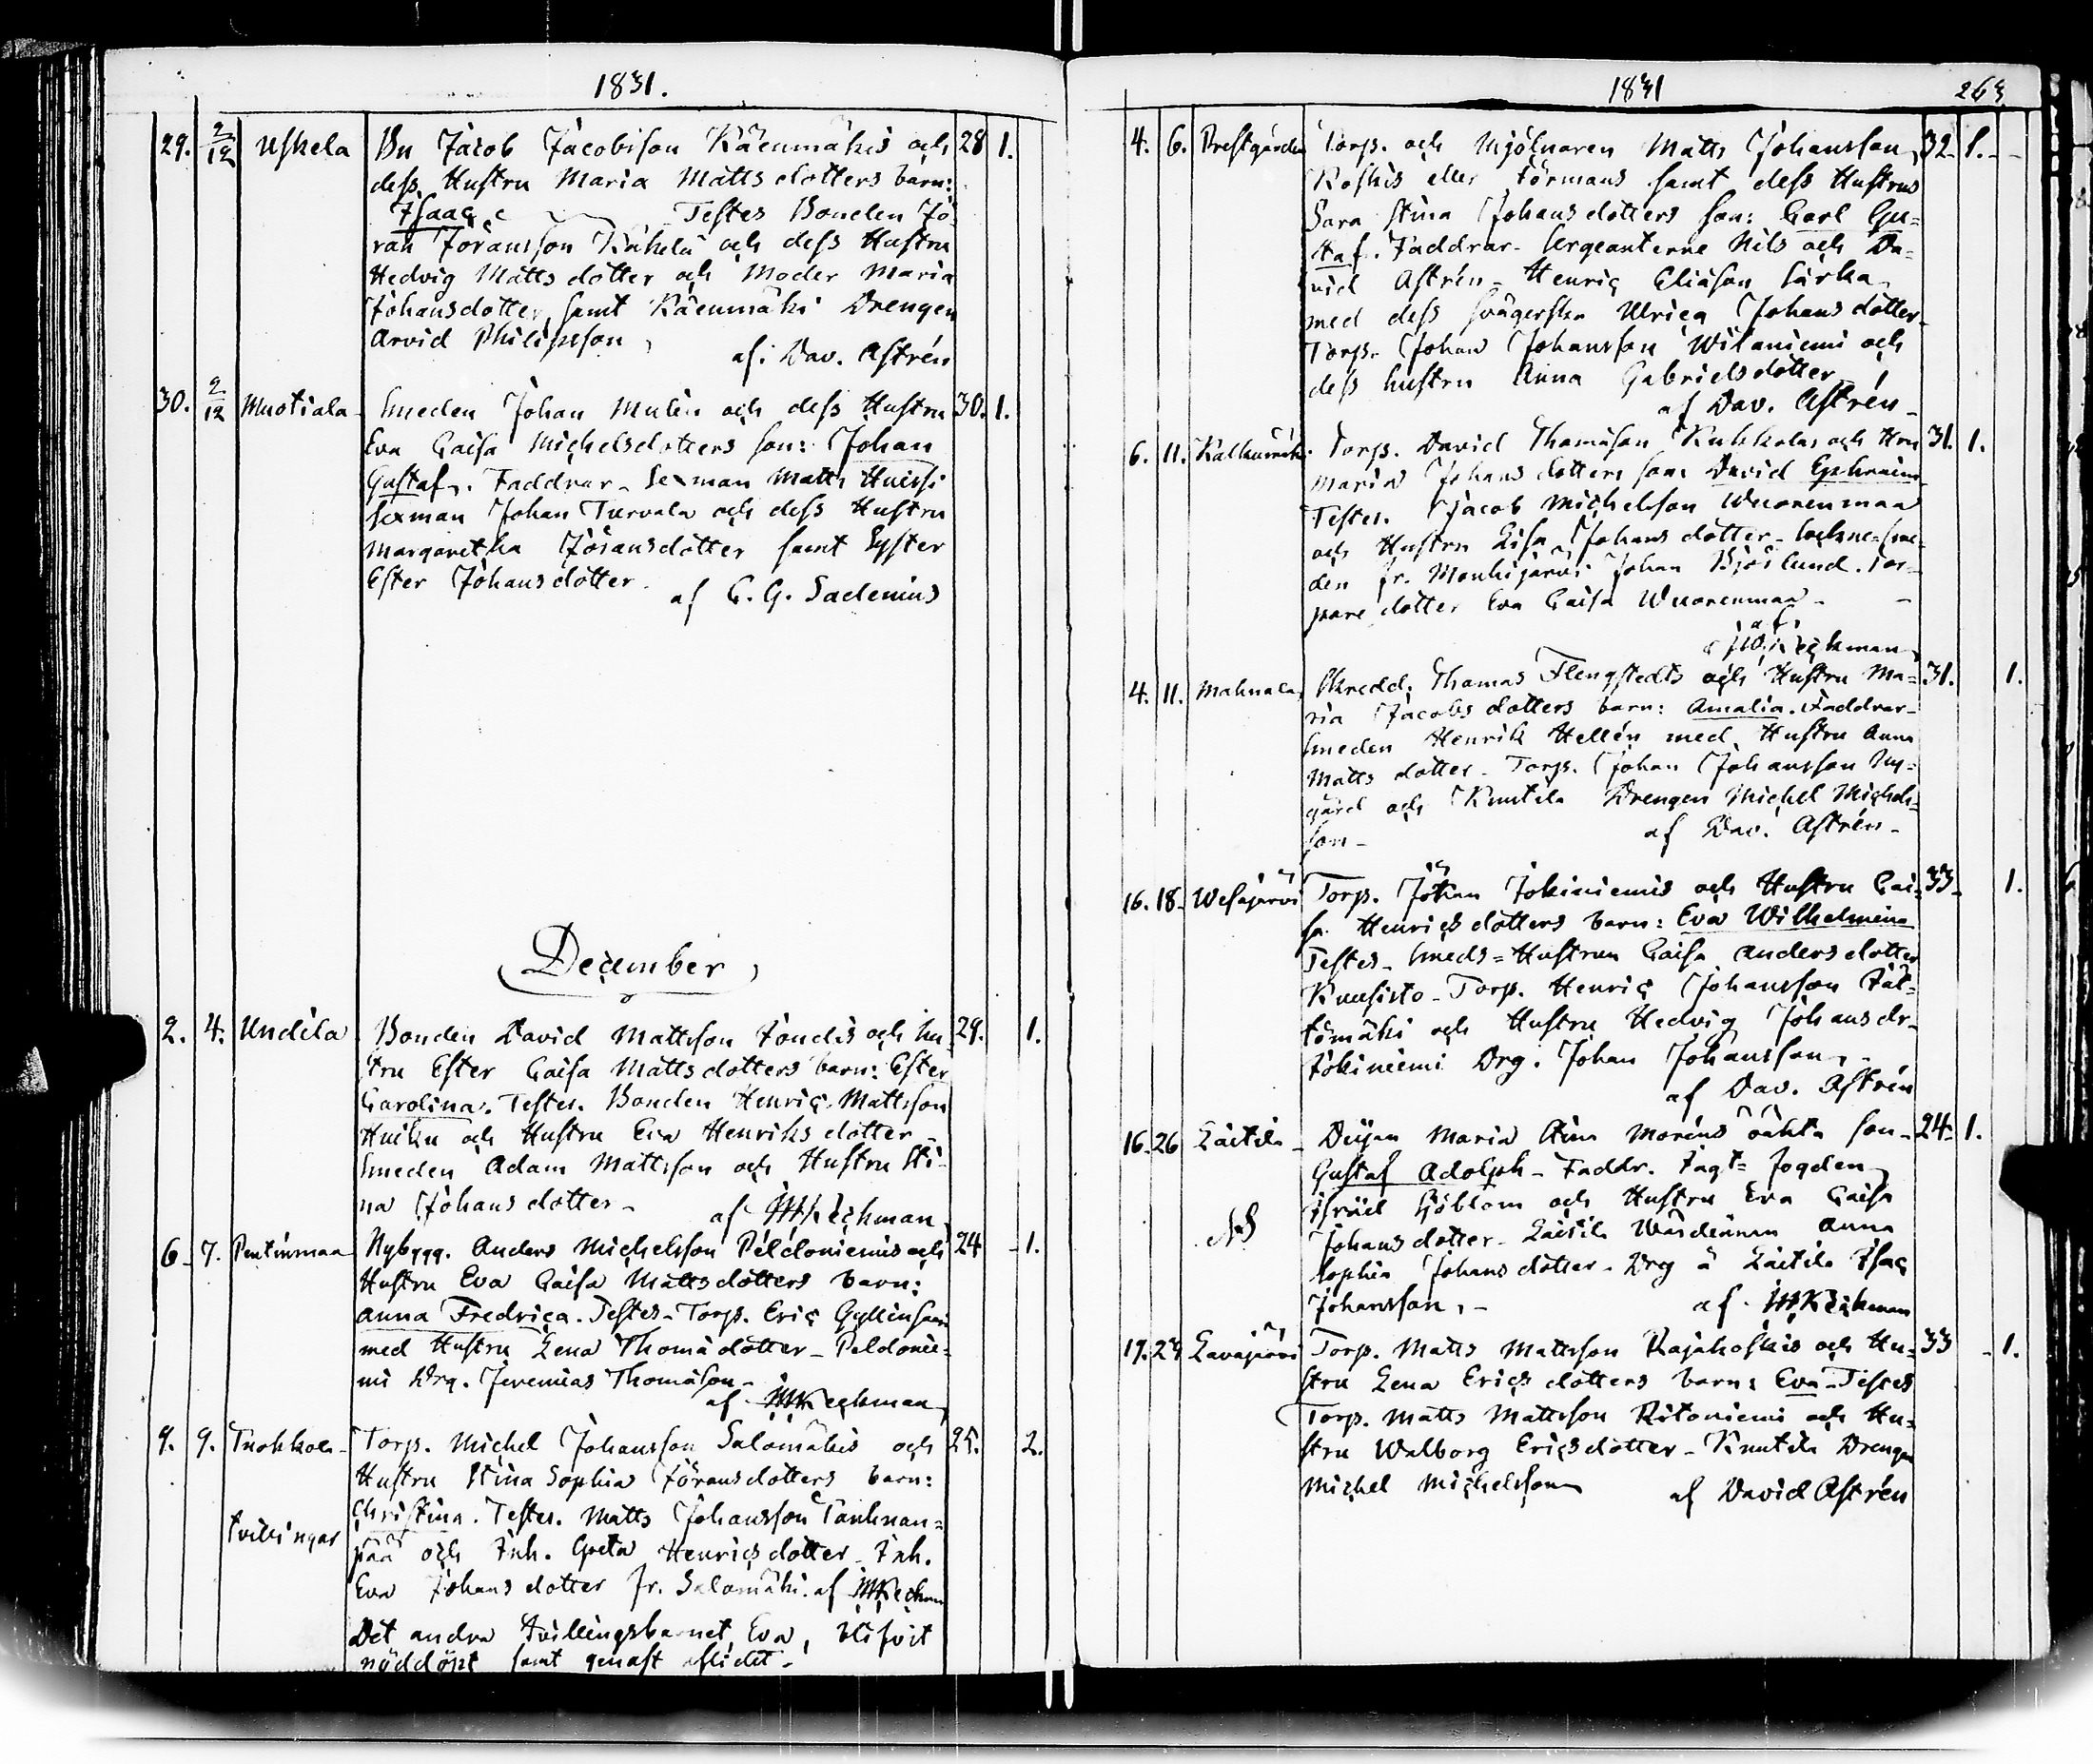 1831.
29. 2/12 Uskela Bn Jacob Jacobsson Käenmäkis och 28 1.
dess Hustru Maria Matts dotters barn:
Isaac Testes Bonden Jö
ran Jöransson och dess Hustru
Hedvig Matts dotter och Moder Maria
Johansdotter, samt Käenmäki Drengen
Arvid Philipsson,
af: Dav. Astrén
30. 2/12 Muotiala Smeden Johan Mulin och dess Hustru 30. 1.
Eva Caisa Michelsdotters son: Johan
Gustaf. Faddrar - Sexman Matts Huissi
Sexman Johan Turvala och dess Hustru
Margaretha Jöransdotter samt Syster
Ester Johansdotter.
af C. G. Sadenius
December
2. 4. Undila Bonden David Mattsson och hu- 29. 1.
stru Ester Caisa Mattsdotters barn: Ester
Carolina. Testes. Bonden Henric Mattsson
och Hustru Eva Henriks dotter -
Smeden Adam Mattsson och Hustru Sti-
na Johans dotter -
af
6. 7. Pentinmaa Nybygg. Anders Michelsson Peldoniemis och 24 - 1.
Hustru Eva Caisa Mattsdotters barn:
Anna Fredrica. Testes - Torp. Eric
med Hustru Lena Thomä dotter - Peldonie-
mi Drg. Jeremias Thomäson -
af
9. 9. Torp. Michel Johansson Salomäkis och 25. 2.
Hustru Stina Sophia Jöransdotters barn:
Christina. Testes. Matts Johansson Tanhuan-
tvillingar
pää och Inh. Greta Henricsdotter - Inh.
Eva Johansdotter fr. Salomäki. af
Det andra tvillingsbarnet, Eva, blifvit
nöddöpt samt genast aflidet -
1831 263
4. 6. Prestgården Torp. och Mjölnaren Matts Johansson 32 1.
Koskis eller Törmäns samt dess Hustrus
Sara Stina Johansdotters son: Carl Gu-
staf. Faddrar - Sergeanterne Nils och Da-
vid Astrén - Henric Eliäson Särkä
med dess Svägerska Ulrica Johans dotter -
Torp. Johan Johansson Witaniemi och
dess hustru Anna Gabrielsdotter -
af Dav. Astrén -
6. 11. Torp. David Thomäson Kuhkolas och Hru 31. 1.
Maria Johans dotters son: David Ephraim
Testes. Jacob Michelsson Wuorenmaa
och Hustru Lisa Johans dotter - Sockne-sme-
den fr. Mouhijärvi Johan Björlund. Tor-
pare dotter Eva Caisa Wuorenmaa -
af
4. 11. Mahnala Skredd. Thomas Flengstedts och Hustru Ma- 31. 1.
ria Jacobs dotters barn: Amalia. Faddrar -
Smeden Henrik Hellén med Hustru Anna
Matts dotter - Torp. Johan Johansson Ny-
gård och Knutila Drengen Michel Michels-
son -
af Dav. Astrén -
16. 18. Wesajärvi Torp. Johan Jokiniemis och Hustru Cai- 33 1.
sa Henricsdotters barn: Eva Wilhelmina
Testes - Smeds-Hustrun Caisa Anders dotter
Kuusisto - Torp. Henric Johansson
och Hustru Hedvig Johans dr -
Jokiniemi Drg. Johan Johansson, -
af Dav. Astrén
16. 26 Laitila - Pigan Maria Stina Moréns oäkta son - 24. 1.
Gustaf Adolph - Faddr. Jagt-fogden
Israël Sjöblom och Hustru Eva Caisa
Johans dotter - Laitila Anna
Sophia Johans dotter - Drg å Laitila Isac
Johansson, -
af
17. 23 Lavajärvi Torp. Matts Mattsson Rajakoskis och Hu- 33 - 1.
stru Lena Erics dotters barn: Eva - Testes
Torp. Matts Mattsson Ritoniemi och Hu-
stru Walborg Ericsdotter - Knutila Drengen
Michel Michelsson
af David Astrén